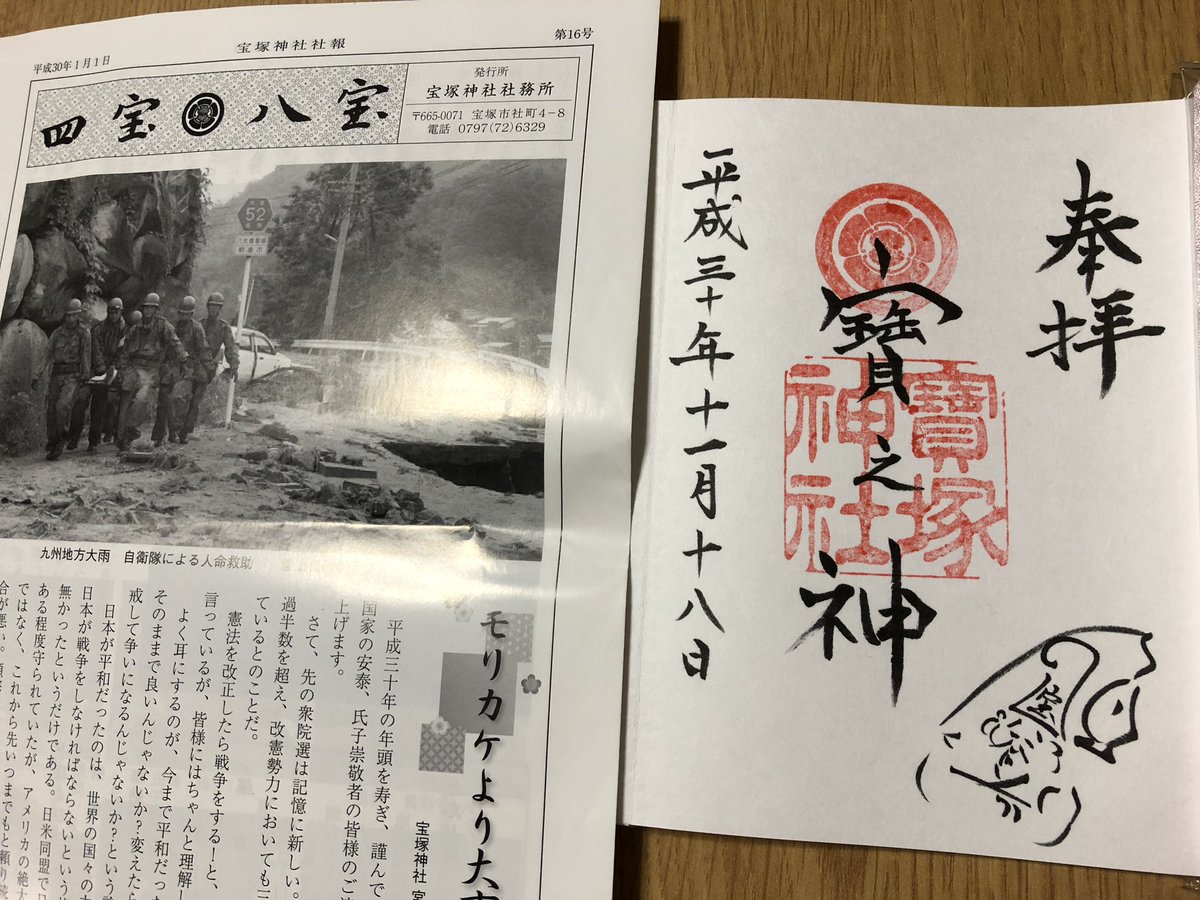 平成30年1月1日
宝塚神社社報
第16号
四宝八宝
発行所
宝塚神社社務所
〒665-0071 宝塚市社町4−8
電話 0797(72)6329
52
朝倉市
九州地方大雨 自衛隊による人命救助
モリカケより大
宝塚神社 宮
平成三十年の年頭を寿ぎ、謹んで
国家の安泰、氏子崇敬者の皆様のご
上げます。
さて、先の衆院選は記憶に新しい。
過半数を超え、改憲勢力においても三
ているとのことだ。
憲法を改正したら戦争をする！と、
言っているが、皆様にはちゃんと理解し
よく耳にするのが、今まで平和だっ
そのままで良いんじゃないか？変えたら
戒して争いになるんじゃないか？という
日本が平和だったのは、世界の国々の
日本が戦争をしなければならないという
無かったというだけである。日米同盟で
ある程度守られていたが、アメリカの絶
ではなく、これから先いつまでもと頼り
合が悪い。
奉拝
寶之神
寶塚
神社
平成三十年十一月十八日